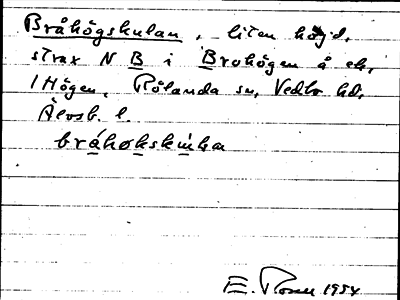 Bråhögskulan, liten höjd,
strax N B i Brohögen å ek,
1 Högen, Rölanda sn, Vedbo hd,
Älvsb. l.
bråhökskulan
E. Rosell 1954